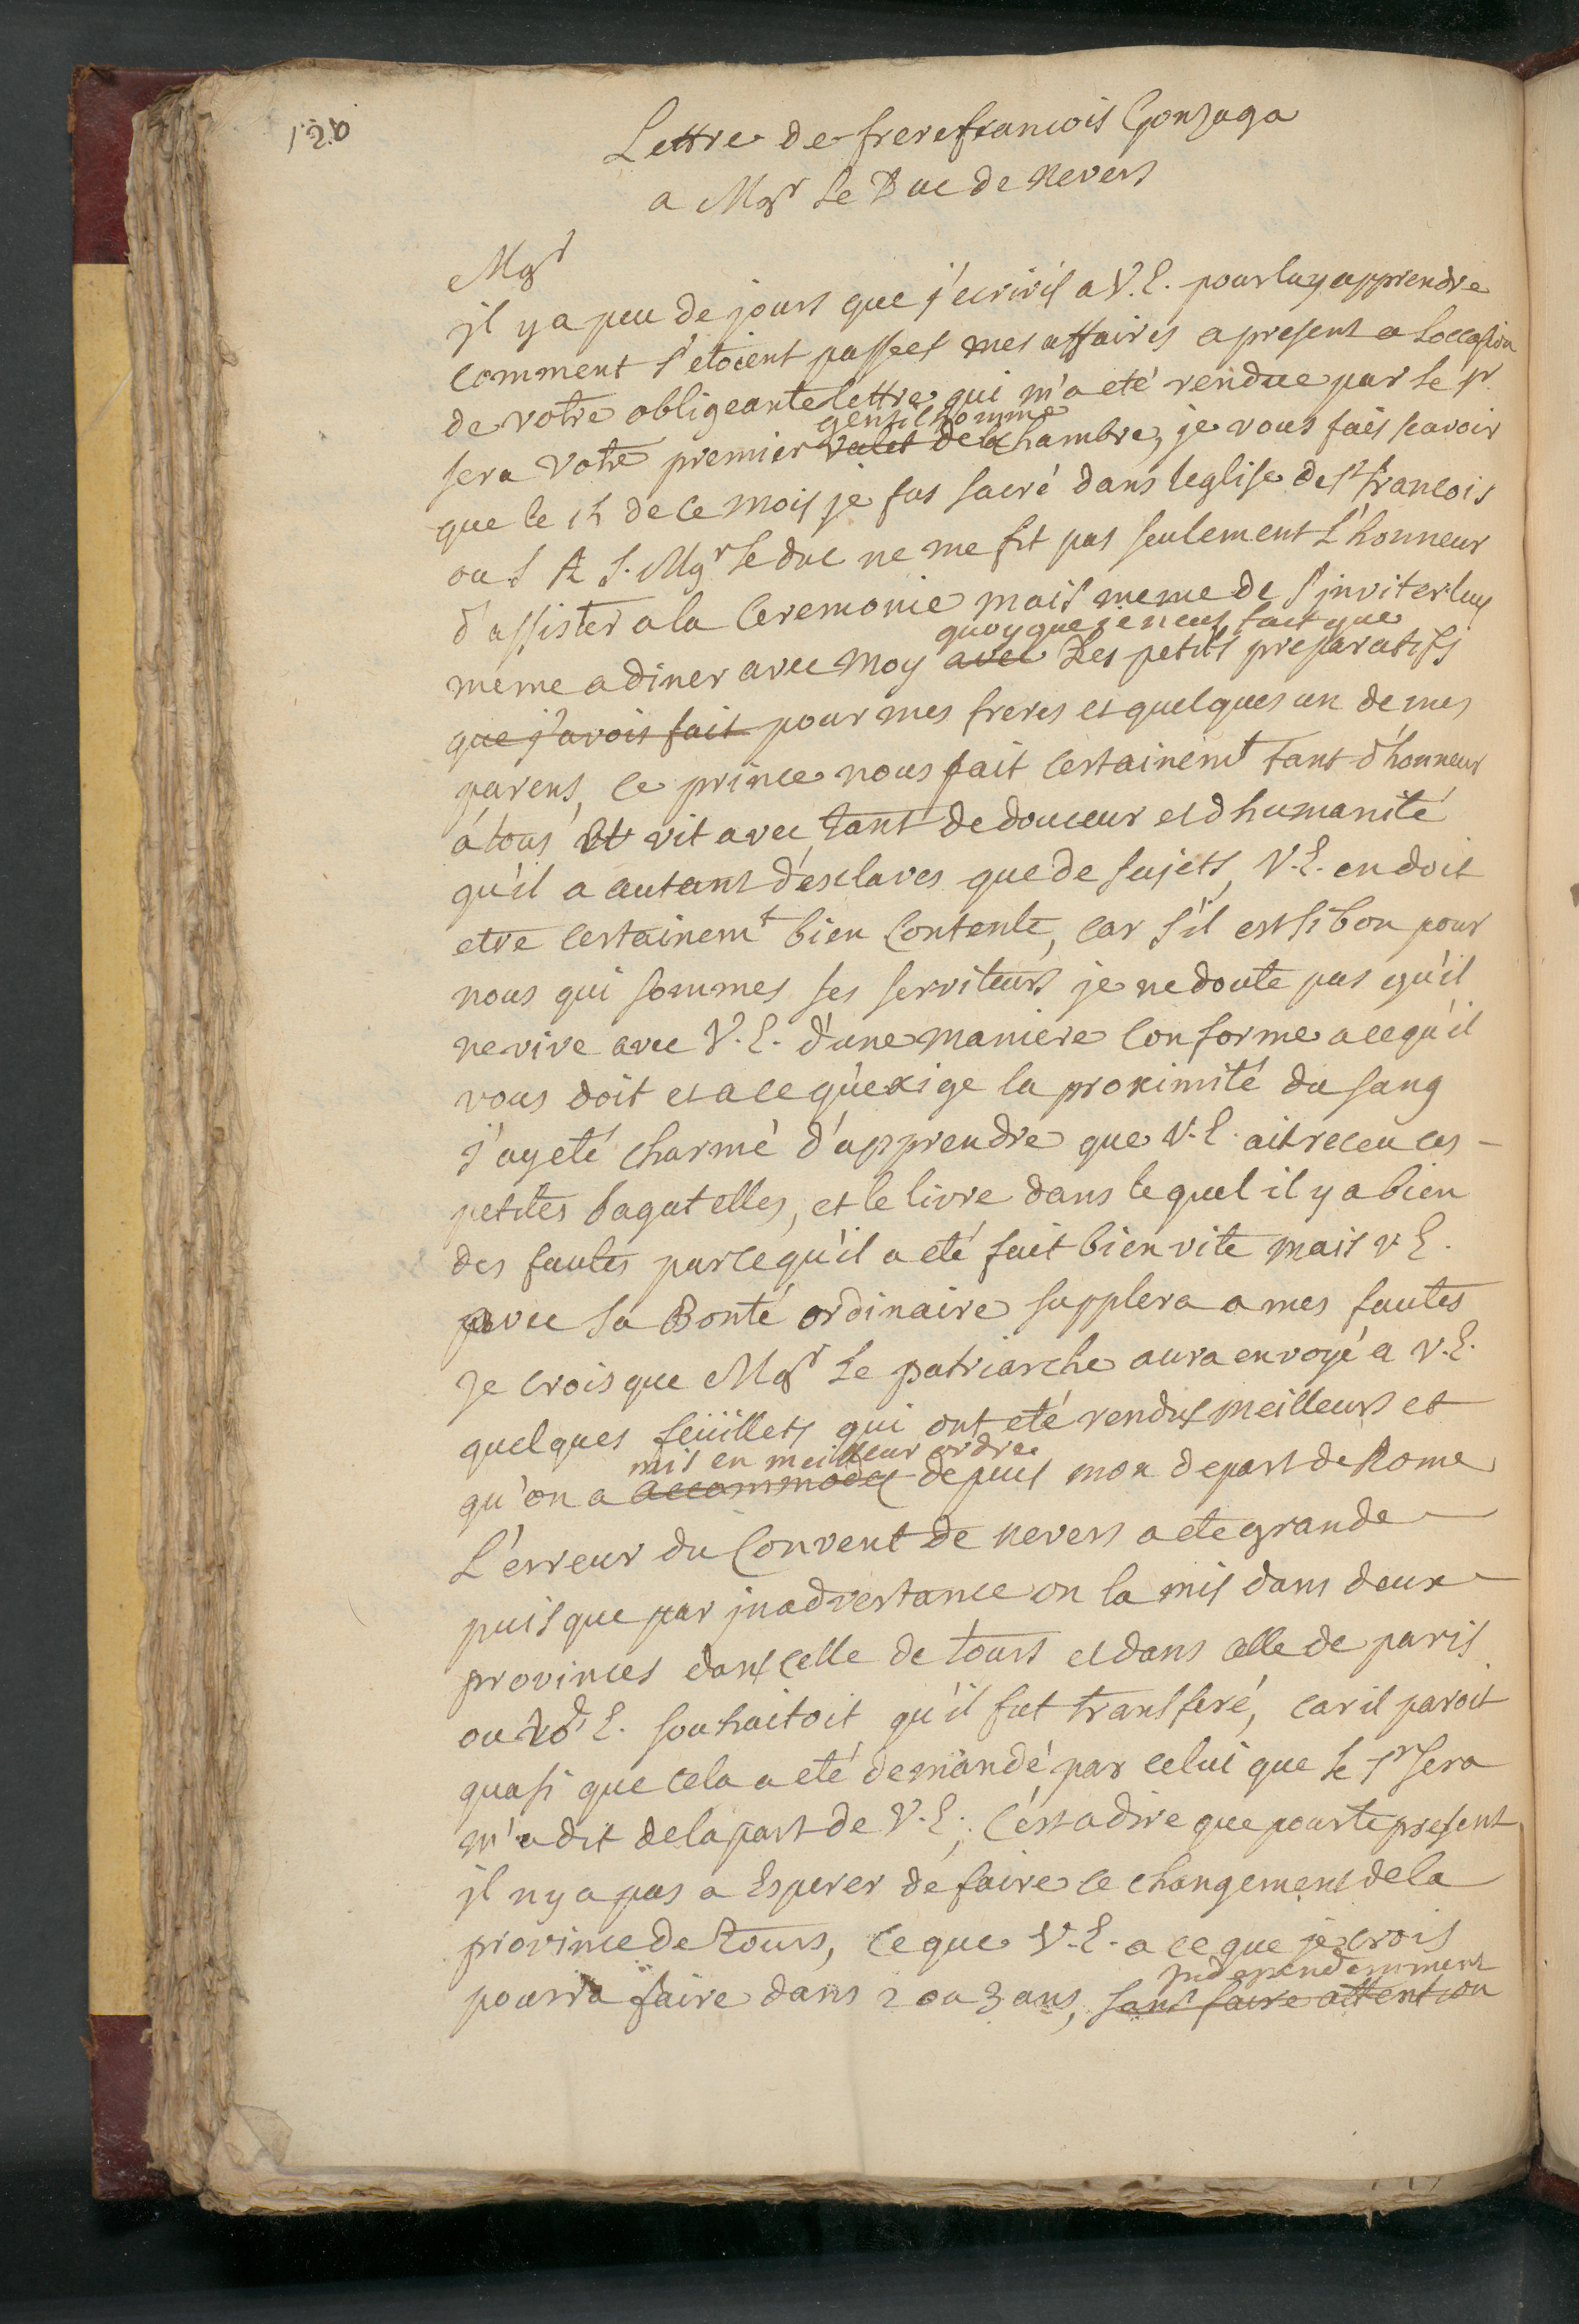 120
Lettre de frere francois Gonzaga
a Mgr le Duc de Nevers
Mgr
il y a peu de jours que j'ecrivis a V. E. pour luy apprendre
comment s'etoient passees mes affaires a present a loccasion
de votre obligeante lettre qui m'a eté rendue par le sr
gentilhomme
sera votre premier valet de la chambre, je vous fais scavoir
que le 15 de ce mois je fus sacré dans leglise de st francois
ou S A S. Mgr le duc ne me fit pas seulement l'honneur
d'assister a la Ceremonie mais meme de s'inviter luy
quoyque je neus fait que
meme a diner avec moy avec des petits preparatifs
que j'avois fait pour mes freres et quelques un de mes
parens, ce prince nous fait certainemt tant d'honneur
á tous et vit avec tant de douceur et dhumanité
qu'il a autant d'esclaves que de sujets, V. E. en doit
etre certainemt bien contente, car s'il est si bon pour
nous qui sommes ses serviteurs je ne doute pas qu'il
ne vive avec V. E. d'une maniere conforme a ce qu'il
vous doit et a ce qu'exige la proximité du sang
j'ay eté charmé d'apprendre que V. E. ait receu ces
petites bagatelles, et le livre dans lequel il y a bien
des fautes parce qu'il a eté fait bien vite mais v E.
avec sa Bonté ordinaire supplera a mes fautes
je crois que Mgr le patriarche aura envoyé a V. E.
quelques feüillets qui ont eté rendus meilleurs et
mis en meilleur ordre
qu'on a accommodes depuis mon depart de Rome
L'erreur du Convent de nevers a ete grande
puisque par inadvertance on la mis dans deux
provinces dans celle de tours et dans celle de paris
ou E. souhaitoit qu'il fut transferé, car il paroit
quasi que cela a eté demandé par celui que le sr sera
m'a dit de la part de V. E.; c'est a dire que pour le present
il n'y a pas a Esperer de faire ce changement de la
province de Tours, ce que V. E. a ce que je crois
independemment
pourra faire dans 2 ou 3 ans, sans faire attention